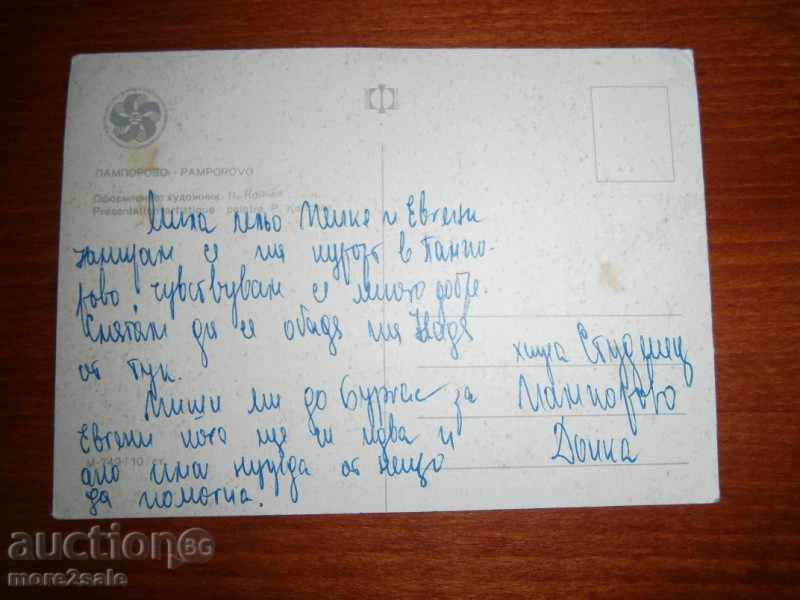 ПАМПОРОВО - PAMPOROVO
Оформление: художник
Présentation artistique peintre P.
Мила лельо Пенке и Евгени
намирам се на курорт в Пампо-
рово, чувствувам се много добре.
Смятам да се обадя на Надя
от тук.
Пиши ми до Бургас за
Евгени кога ще си идва и
ако има нужда от нещо
да помогна.
хижа Студенец
Пампорово
Донка
М-742-110 ст.
auction BG
more2sale